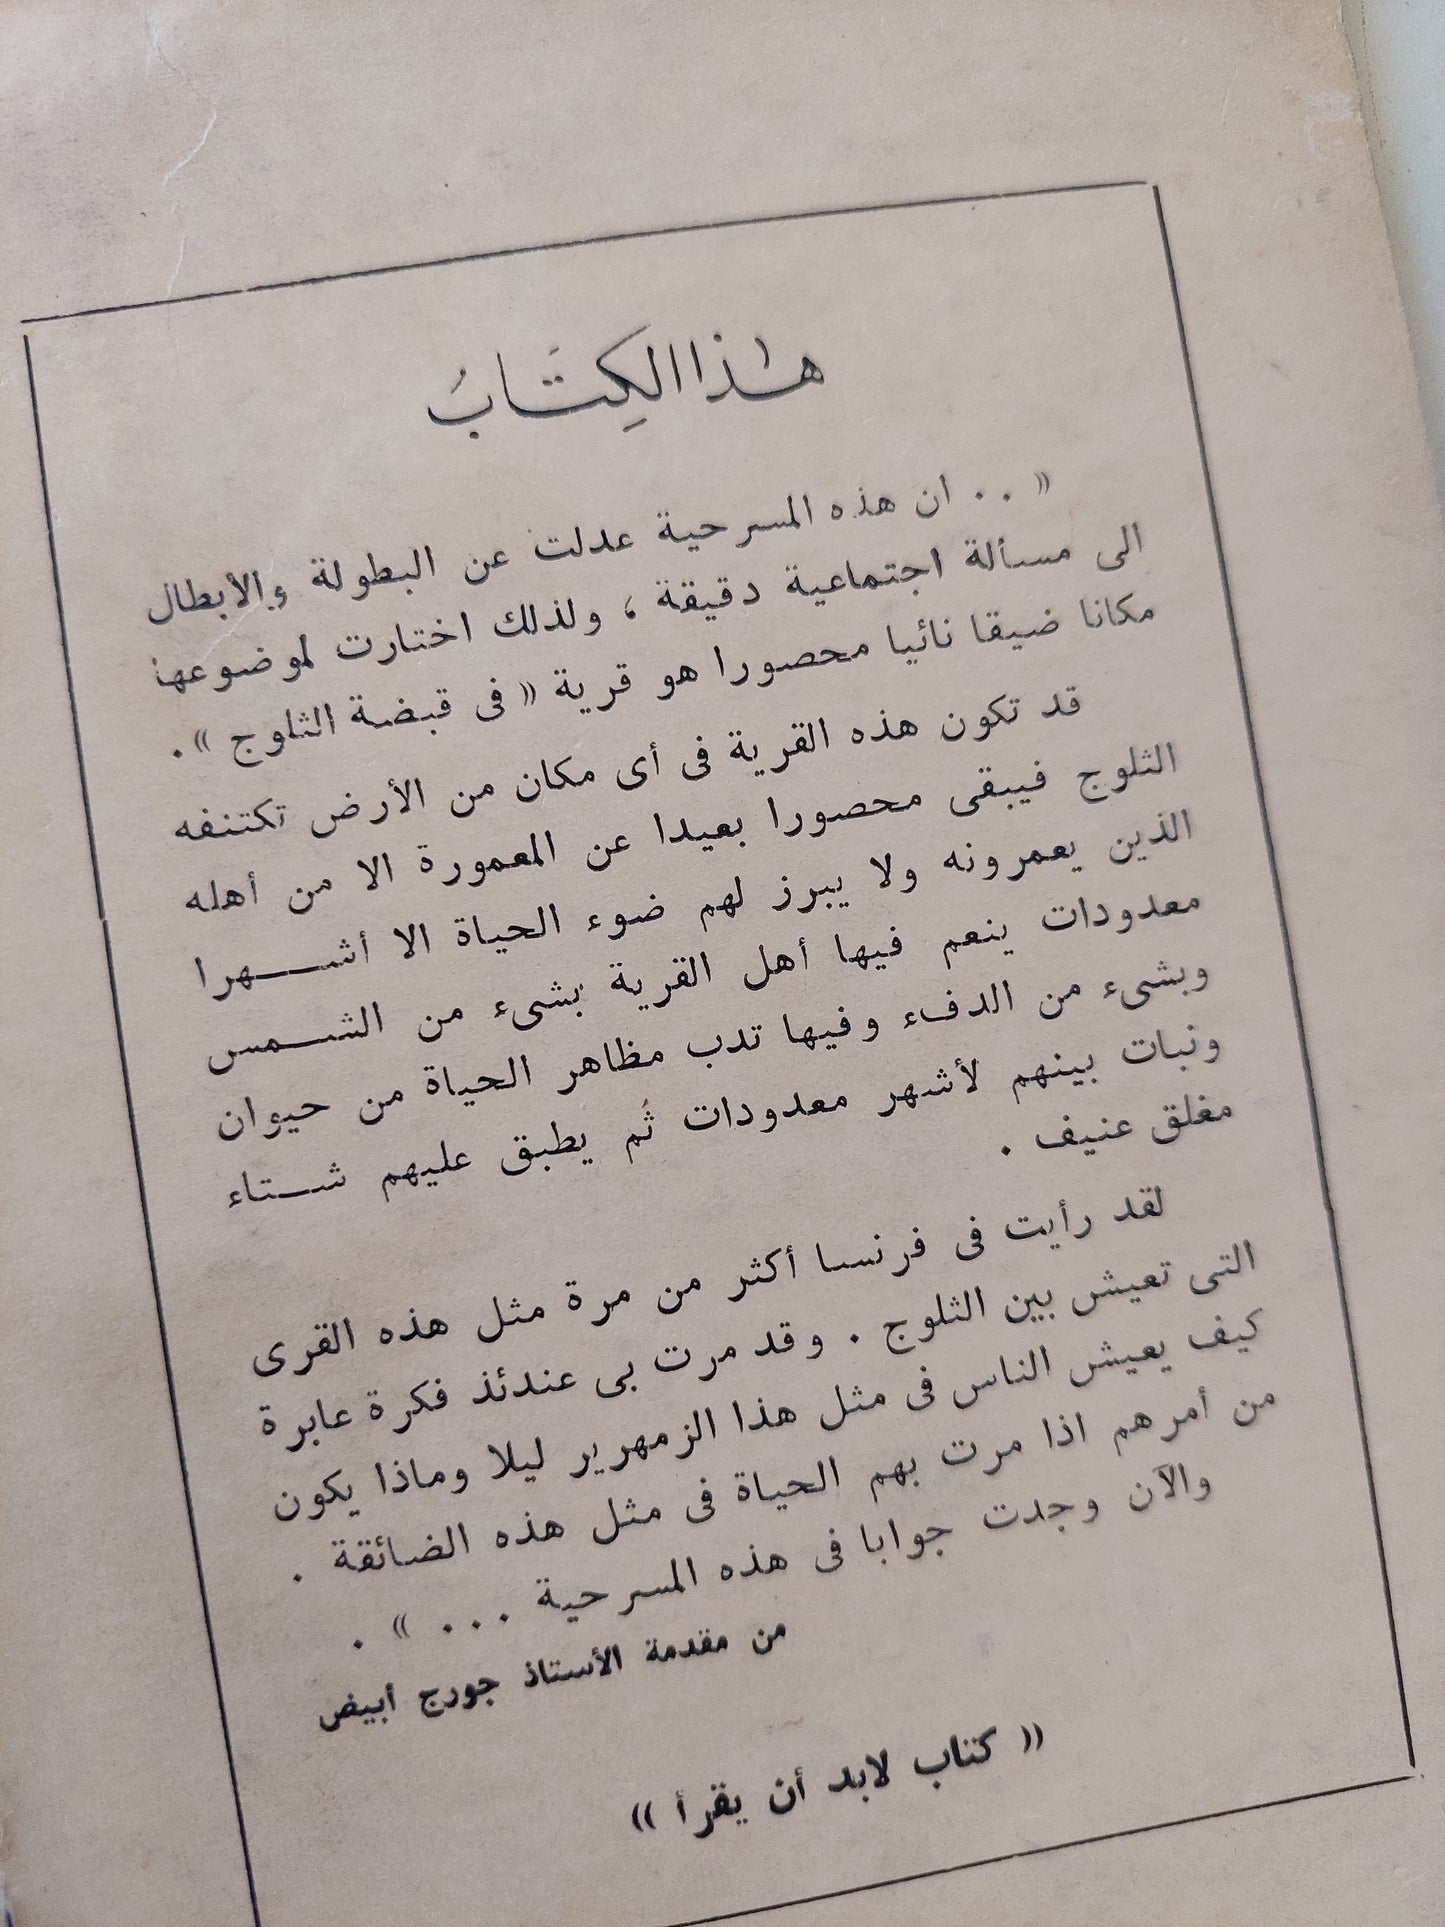 هٰذا الكِتَابُ
« . . ان هذه المسرحية عدلت عن البطولة والأبطال
الى مسألة اجتماعية دقيقة ، ولذلك اختارت لموضوعها
مكانا ضيقا نائيا محصورا هو قرية « فى قبضة الثلوج » .
قد تكون هذه القرية فى أى مكان من الأرض تكتنفه
الثلوج فيبقى محصورا بعيدا عن المعمورة الا من أهله
الذين يعمرونه ولا يبرز لهم ضوء الحياة الا أشهرا
معدودات ينعم فيها أهل القرية بشىء من الشمس
وبشىء من الدفء وفيها تدب مظاهر الحياة من حيوان
ونبات بينهم لأشهر معدودات ثم يطبق عليهم شتاء
مغلق عنيف .
لقد رأيت فى فرنسا أكثر من مرة مثل هذه القرى
التى تعيش بين الثلوج . وقد مرت بى عندئذ فكرة عابرة
كيف يعيش الناس فى مثل هذا الزمهرير ليلا وماذا يكون
من أمرهم اذا مرت بهم الحياة فى مثل هذه الضائقة .
والآن وجدت جوابا فى هذه المسرحية . . . » .
من مقدمة الأستاذ جورج أبيض
« كتاب لابد أن يقرأ »